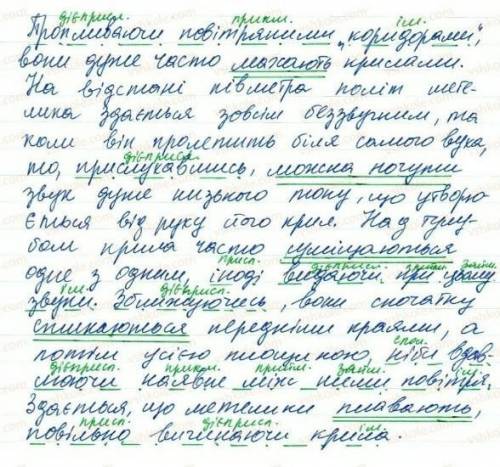 дієприсл. прикм. ім.
Пропливаючи повітряними „коридорами",
вони дуже часто махають крилами.
На відстані півметра політ мете-
лика здається зовсім беззвучним, та
коли він пролетить біля самого вуха,
дієприсл.
то, прислухавшись, можна почути
звук дуже низького тону, що утворю-
ється від руху його крил. Над тулу-
бом крила часто суміщаються
присл. дієприсл. займ.
одне з одним, іноді видаючи при цьому
ім. дієприсл.
звуки. Зближуючись, вони спочатку
стикаються передніми краями, а
спол.
потім усією площиною, ніби вдав-
дієприсл. прикм. прийм. займ. ім.
люючи наявне між ними повітря.
Здається, що метелики плавають,
присл. дієприсл. ім.
повільно вигинаючи крила.